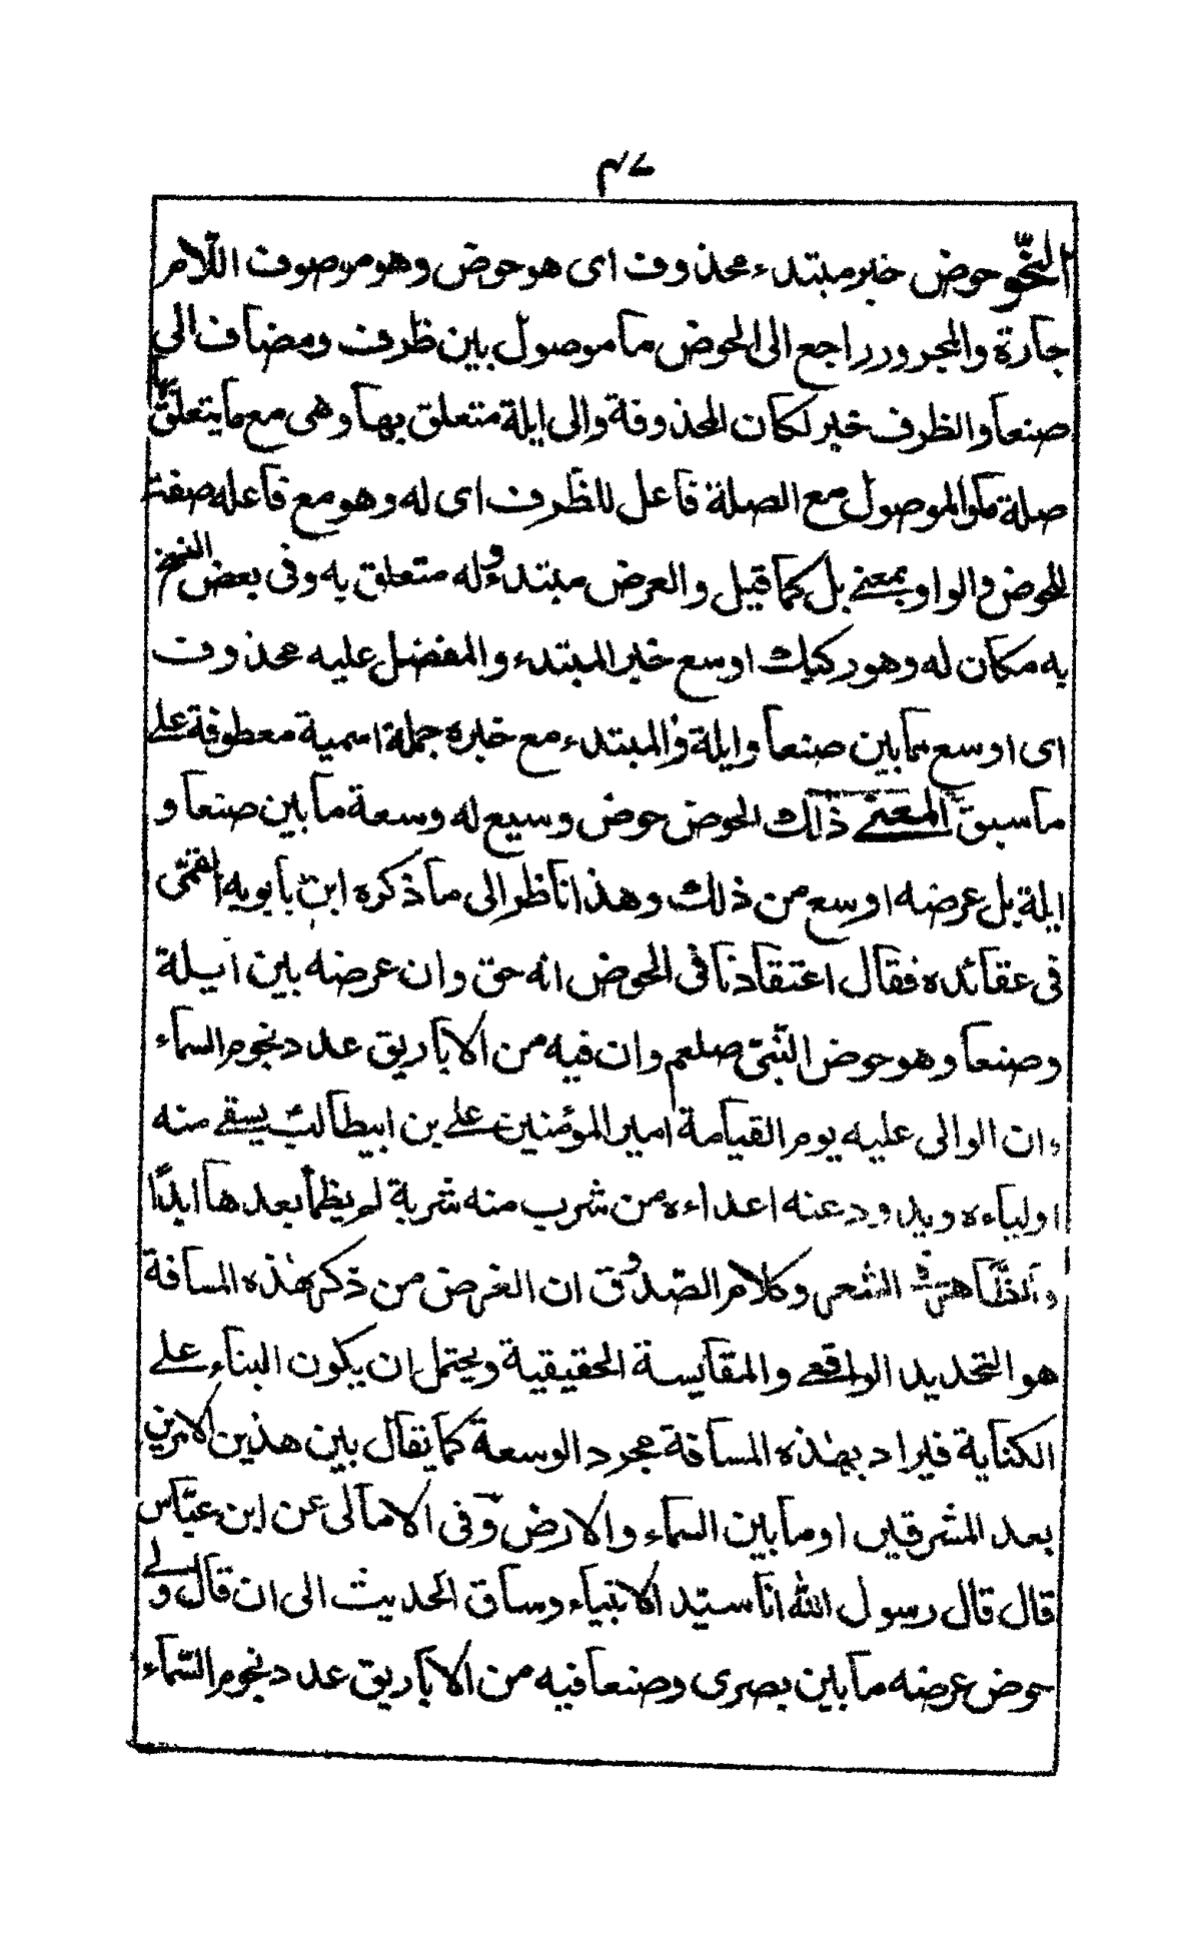 ٤٧
النحو حوض خبر مبتدء محذوف اى هو حوض وهو موصوف اللام
جارة والمجرور راجع الى الحوض ما موصول بين ظرف ومضاف الى
صنعا والظرف خبر لكان المحذوفة والى ايلة متعلق بها وهى مع ما يتعلق بها
صلة ما والموصول مع الصلة فاعل للظرف اى له وهو مع فاعله صفة
للحوض والواو بمعنى بل كما قيل والعرض مبتدء وله متعلق به وفى بعض النسخ
به مكان له وهو ركيك اوسع خبر المبتدء والمفضل عليه محذوف
اى اوسع مما بين صنعا وايلة والمبتدء مع خبره جملة اسمية معطوفة على
ما سبق المعنى ذلك الحوض حوض وسيع له وسعة ما بين صنعا و
ايلة بل عرضه اوسع من ذلك وهذا ناظر الى ما ذكره ابن بابويه القمّى
فى عقائده فقال اعتقادنا فى الحوض انه حق وان عرضه بين ايلة
وصنعا وهو حوض النّبىّ صلعم وان فيه من الاباريق عدد نجوم السماء
وان الوالى عليه يوم القيامة امير المؤمنين على بن ابيطالب يسقى منه
اولياءه ويدود عنه اعداءه من شرب منه شربة لم يظمأ بعدها ابدًا
والظّاهر فى الشعر وكلام الصّدوق ان الغرض من ذكر هذه المسافة
هو التحديد الواقعى والمقايسة الحقيقية ويحتمل ان يكون البناء على
الكناية فيراد بهذه المسافة مجرد الوسعة كما يقال بين هذين الامرين
بعد المشرقين او ما بين السماء والارض وفى الامالى عن ابن عبّاس
قال قال رسول الله انا سيّد الانبياء وساق الحديث الى ان قال ولى
حوض عرضه ما بين بصرى وصنعا فيه من الاباريق عدد نجوم السّماء